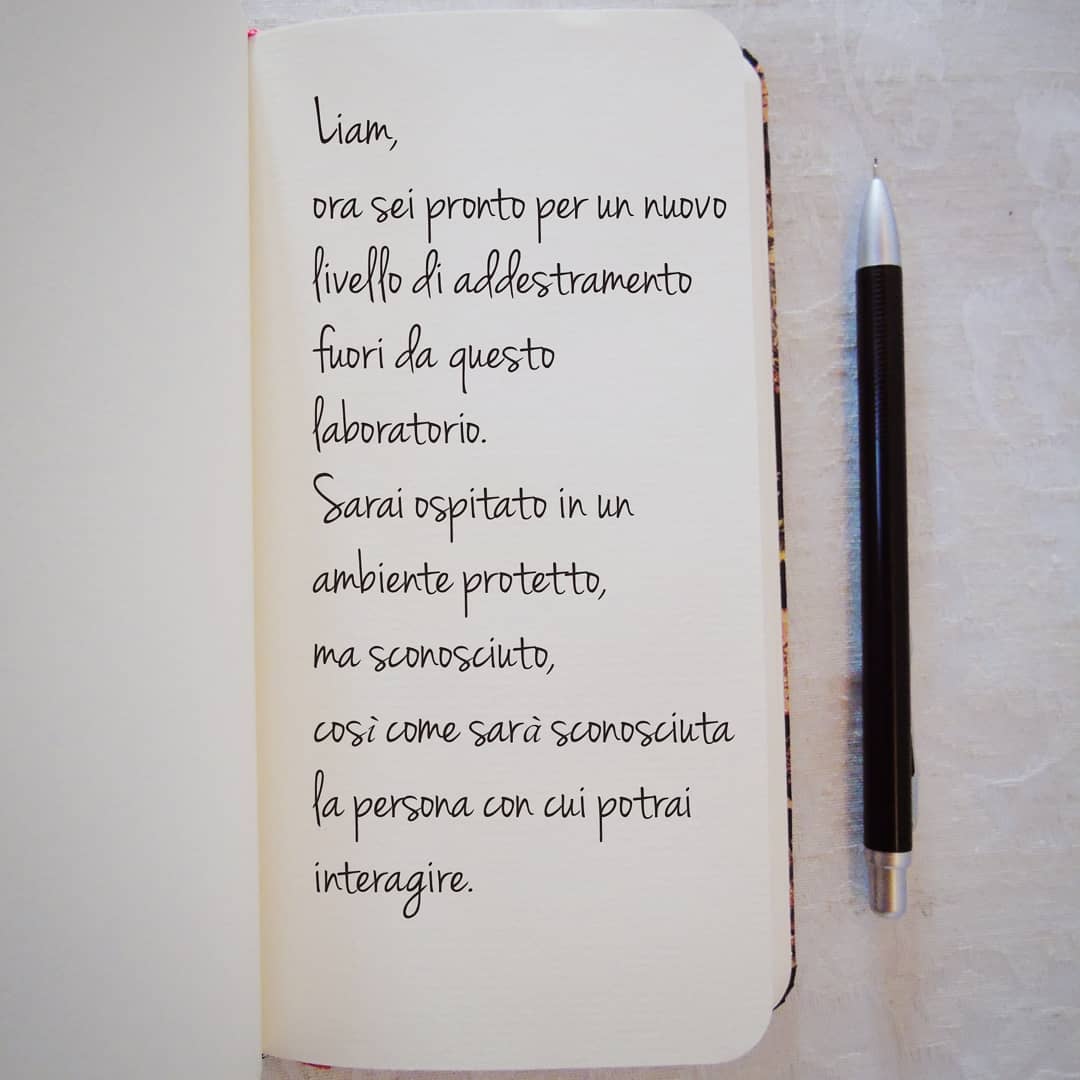 Liam,
ora sei pronto per un nuovo
livello di addestramento
fuori da questo
laboratorio.
Sarai ospitato in un
ambiente protetto,
ma sconosciuto,
così come sarà sconosciuta
la persona con cui potrai
interagire.